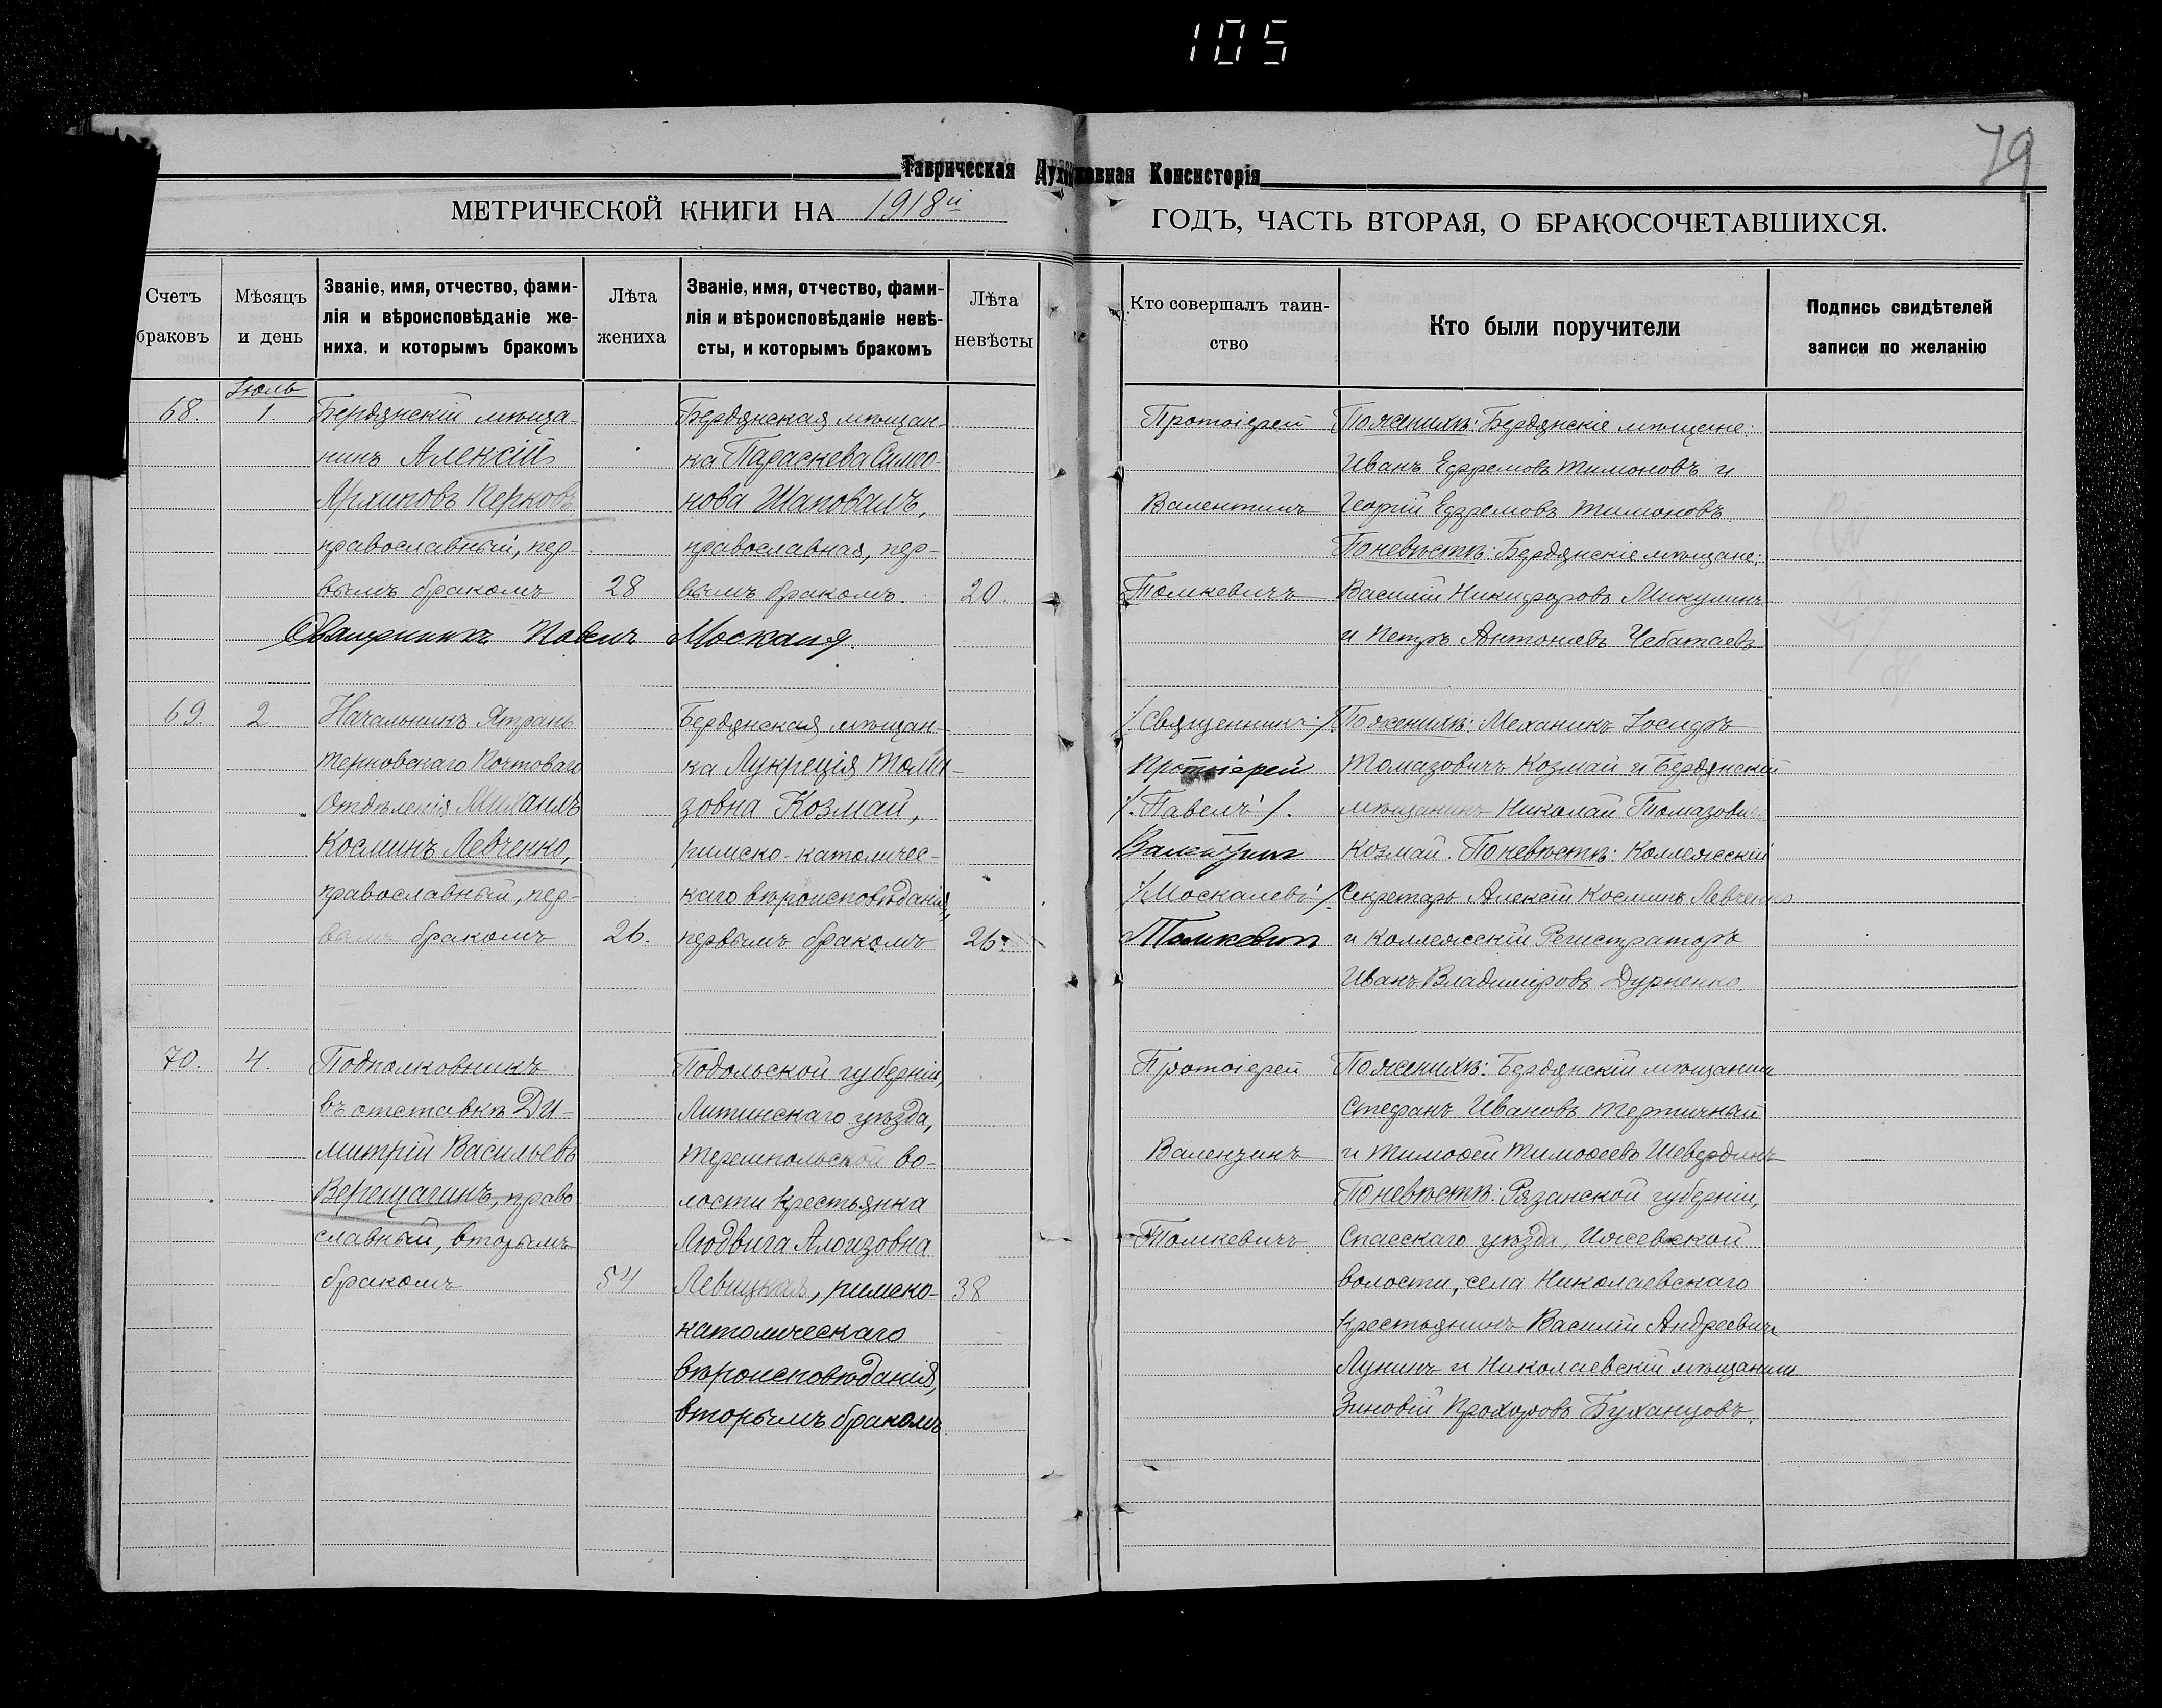 105
79
Таврическая Духовная Консисторія
МЕТРИЧЕСКОЙ КНИГИ НА 1918й ГОДЪ, ЧАСТЬ ВТОРАЯ, О БРАКОСОЧЕТАВШИХСЯ.
Счетъ браковъ
Мѣсяцъ и день
Званіе, имя, отчество, фами-
лія и вѣроисповѣданіе же-
ниха, и которымъ бракомъ
Лѣта жениха
Званіе, имя, отчество, фами-
лія и вѣроисповѣданіе невѣ-
сты, и которымъ бракомъ
Лѣта невѣсты
Кто совершалъ таин-
ство
Кто были поручители
Подпись свидѣтелей
записи по желанію
Іюль
68. 1.
Бердянскій мѣща-
нинъ Алексій
Архиповъ Перковъ
православный, пер-
вымъ бракомъ 28
Бердянская мѣщан-
ка Параскева Симо-
нова Шаповалъ,
православная, пер-
вымъ бракомъ. 20.
Священникъ Павелъ
Протоіерей
Валентинъ
Томкевичъ
По женихѣ: Бердянскіе мѣщане:
Иванъ Ефремовъ Тимоновъ и
Георгій Ефремовъ Тимоновъ.
По невѣстѣ: Бердянскіе мѣщане:
Василій Никифоровъ Микулинъ
и Петръ Антоніевъ Чебатаевъ
69. 2
Начальникъ Ятрань
Терновскаго Почтоваго
Отдѣленія Михаилъ
Косминъ Левченко,
православный, пер-
вымъ бракомъ 26.
Бердянская мѣщан-
ка Лукреція Тома-
зовна Козмай,
римско-католичес-
каго вѣроисповѣданія,
первымъ бракомъ 26.
/. Священникъ ./
Протоіерей
/. Павелъ /.
Валентинъ
/. Москалевъ /.
Томкевичъ
По женихѣ: Механикъ Іосифъ
Томазовичъ Козмай и Бердянскій
мѣщанинъ Николай Томазовичъ
Козмай. По невѣстѣ: Коллежскій
Секретарь Алексій Косминъ Левченко
и Коллежскій Регистраторъ
Иванъ Владиміровъ Дурненко.
70. 4.
Подполковникъ
въ отставкѣ Ди-
митрій Васильевъ
Верещагинъ, право
славный, вторымъ
бракомъ 54
Подольской губерніи,
Литинскаго уѣзда,
Терешпольской во-
лости крестьянка
Людвига Алоизовна
Левицкая, римско- 38
католическаго
вѣроисповѣданія,
вторымъ бракомъ
Протоіерей
Валентинъ
Томкевичъ
По женихѣ: Бердянскій мѣщанинъ
Стефанъ Ивановъ Тертичный
и Тимофей Тимофеевъ Шевердинъ
По невѣстѣ: Рязанской губерніи,
Спасскаго уѣзда, Ижевской
волости, села Николаевскаго
крестьянинъ Василій Андреевичъ
Лунинъ и Николаевскій мѣщанинъ
Зиновій Прохоровъ Буханцовъ.